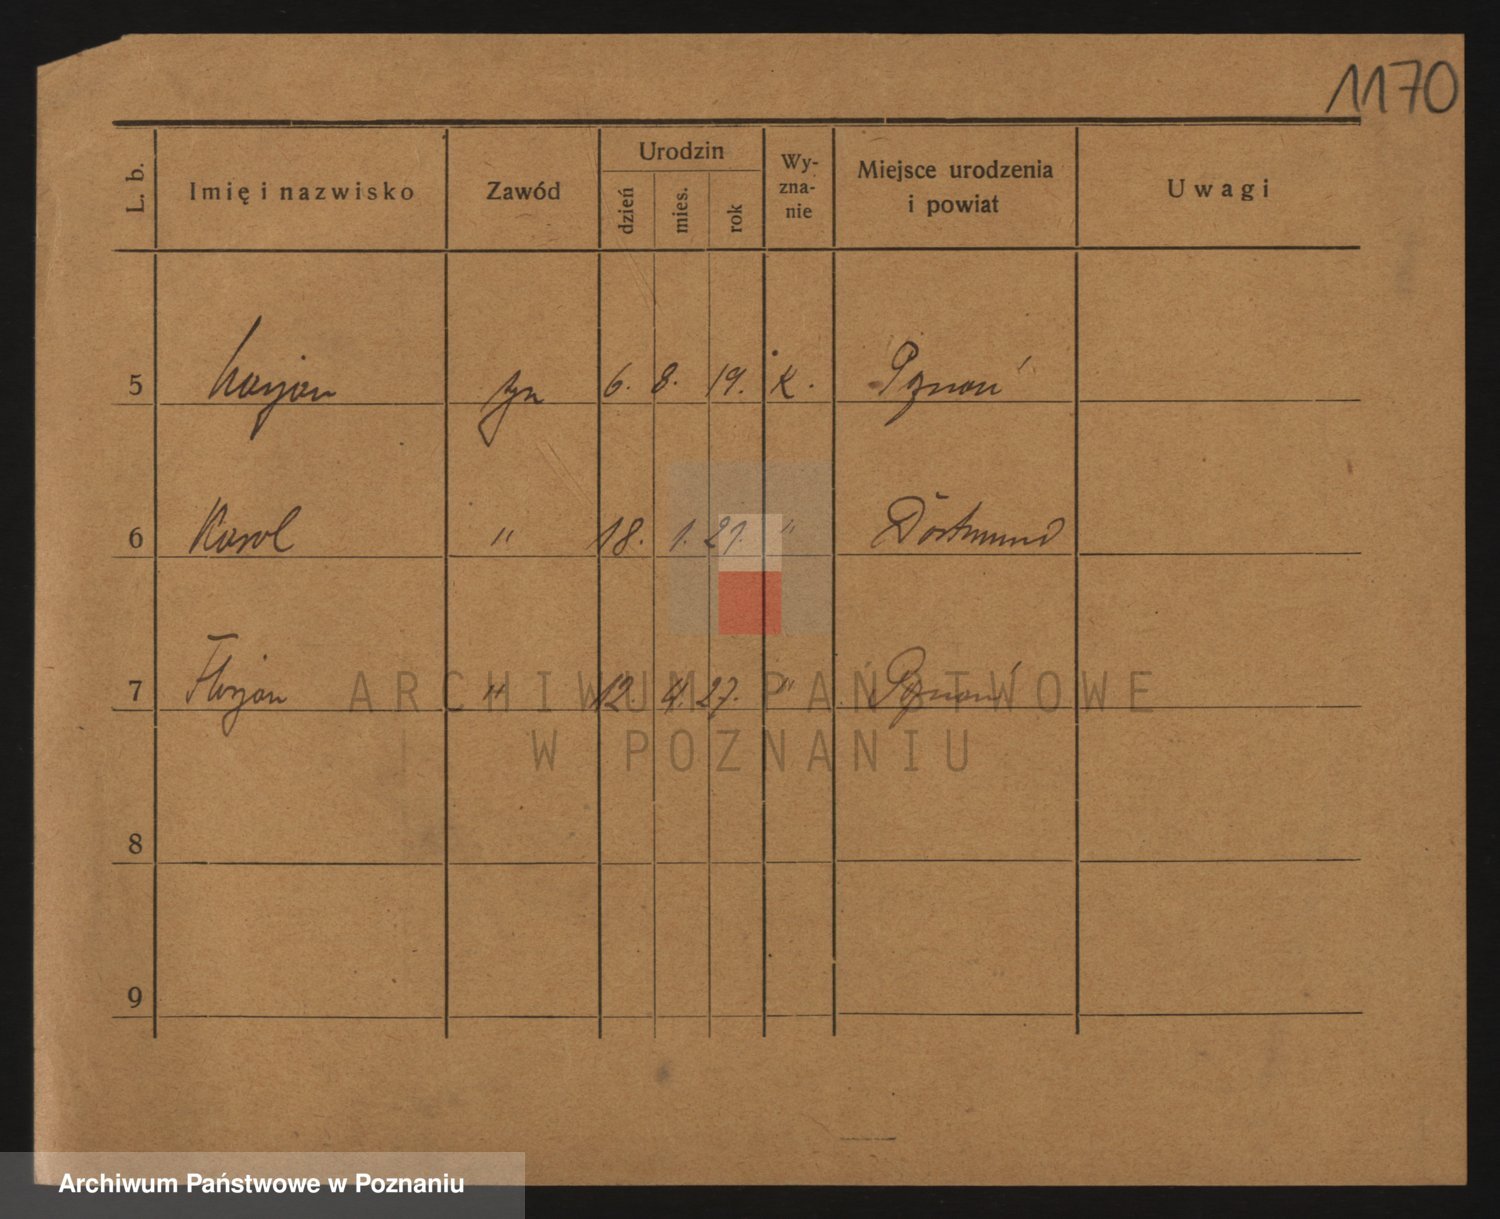 1170
L. b. Imię i nazwisko Zawód Urodzin dzień mies. rok Wy-zna-nie Miejsce urodzenia i powiat Uwagi
5 Marjan syn 6. 8. 19. K. Poznań
6 Karol " 18. 1. 21. " Dortmund
7 Florjan " 12 4. 27. " Poznań
8
9
ARCHIWUM PAŃSTWOWE
W POZNANIU
Archiwum Państwowe w Poznaniu